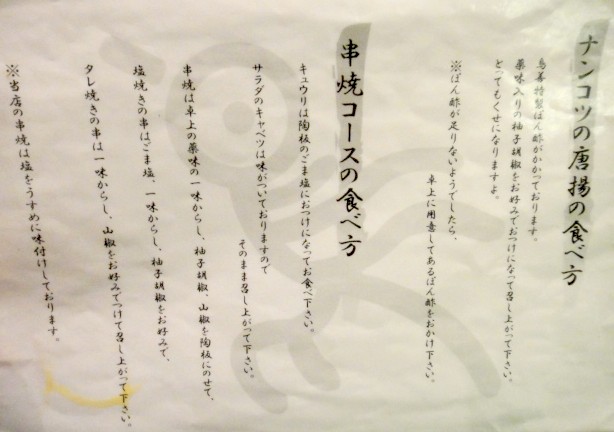 ナンコツの唐揚の食べ方
鳥善特製ぽん酢がかかっております。
薬味入りの柚子胡椒をお好みでおつけになって召し上がって下さい。
とってもくせになりますよ。
※ぽん酢が足りないようでしたら、
卓上に用意してあるぽん酢をおかけ下さい。
串焼コースの食べ方
キュウリは陶板のごま塩におつけになってお食べ下さい。
サラダのキャベツは味がついておりますので
そのまま召し上がって下さい。
串焼は卓上の薬味の一味からし、柚子胡椒、山椒を陶板にのせて、
塩焼きの串はごま塩、一味からし、柚子胡椒をお好みで、
タレ焼きの串は一味からし、山椒をお好みでつけて召し上がって下さい。
※当店の串焼は塩をうすめに味付けしております。